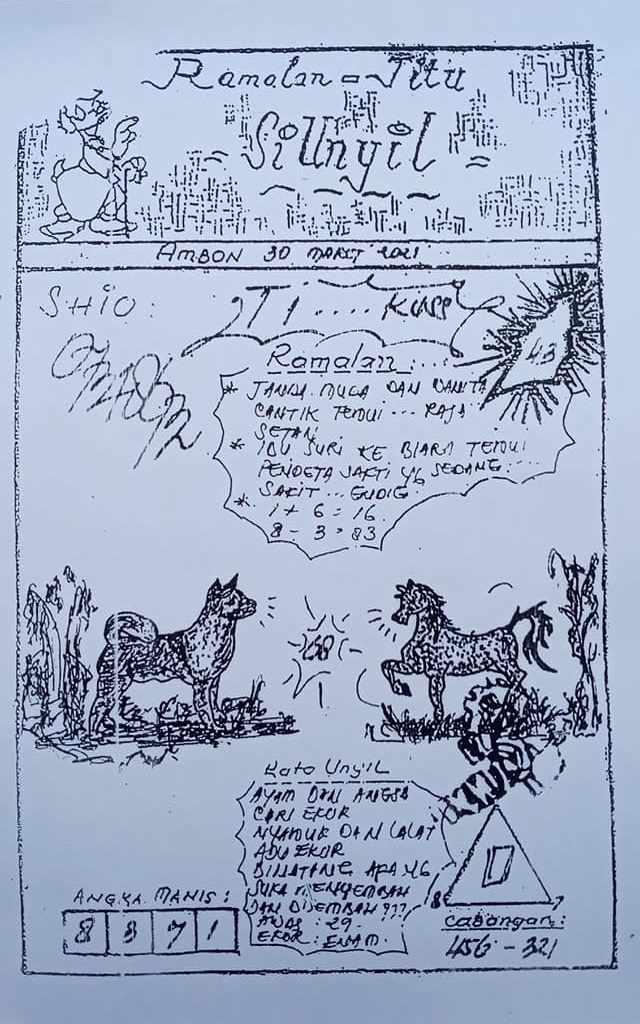 Ramalan = Jitu
SiUnyil
AMBON 30 MARIT 2021
SHIO:
TI .... KUSS
43
Ramalan:....
* JANDA MUDA DAN WANITA
CANTIK TEMUI ... RAJA
SETAN.
* IBU SURI KE BIARA TEMUI
PENDETA SAKTI YG SEDANG...
SAKIT ... GUDIG
* 1 + 6 = 16
8 - 3 = 83
68
Kata Unyil
AYAM DAN ANGSA
CARI EKOR
NYAMUK DAN LALAT
ADU EKOR
BINATANG APA YG
SUKA MENYEMBAH
DAN DISEMBAH ???
ANDA : 29.
EKOR : ENAM.
ANGKA MANIS:
8 3 7 1
0
8 7
Cabangan:
456 - 321